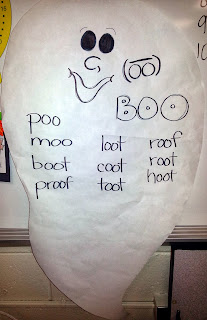 (oo)
BOO
poo
moo loot roof
boot coot root
proof toot hoot